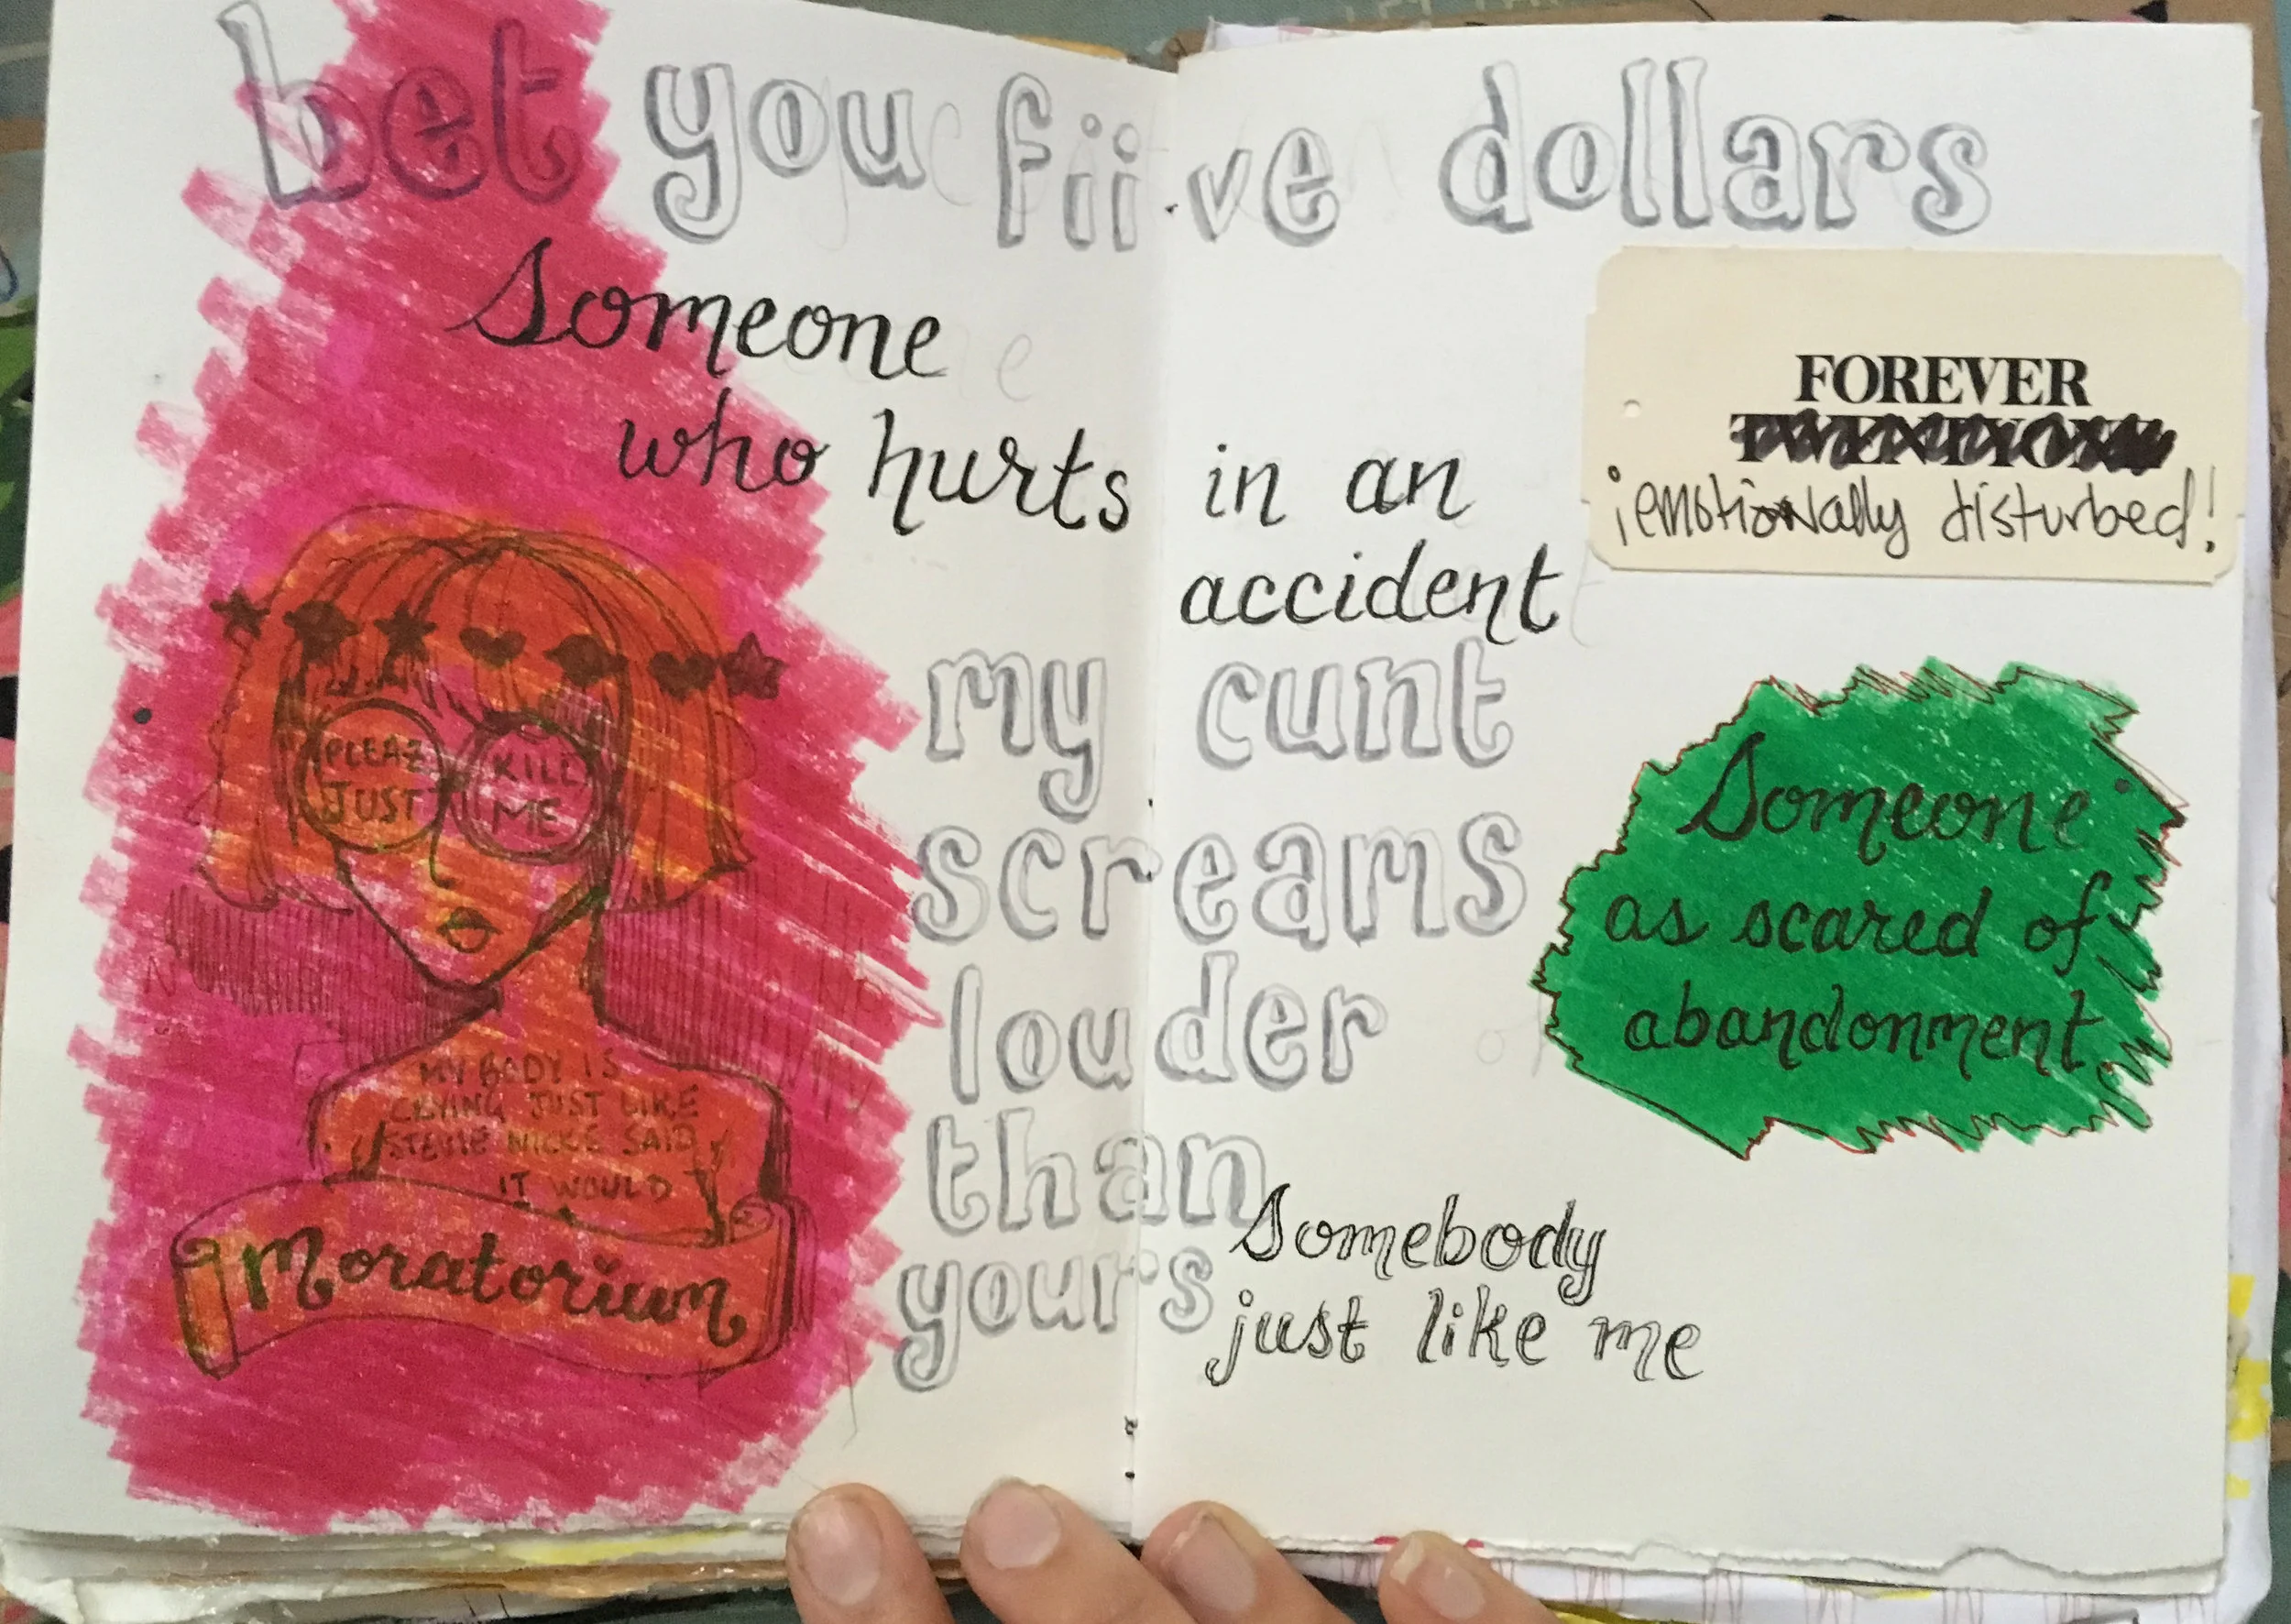 bet you fiive dollars
Someone
who hurts in an
accident
my cunt
screams
louder
than
your's
Somebody
just like me
FOREVER
¡emotionally disturbed!
Someone
as scared of
abandonment
PLEAZ
JUST
KILL
ME
MY BODY IS
CRYING JUST LIKE
STEVIE NICKS SAID
IT WOULD
Moratorium